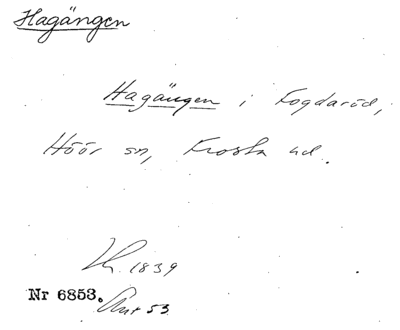 Hagängen
Hagängen i Fogdaröd,
Höör sn, Frosta hd.
1839
Nr 6853.
53